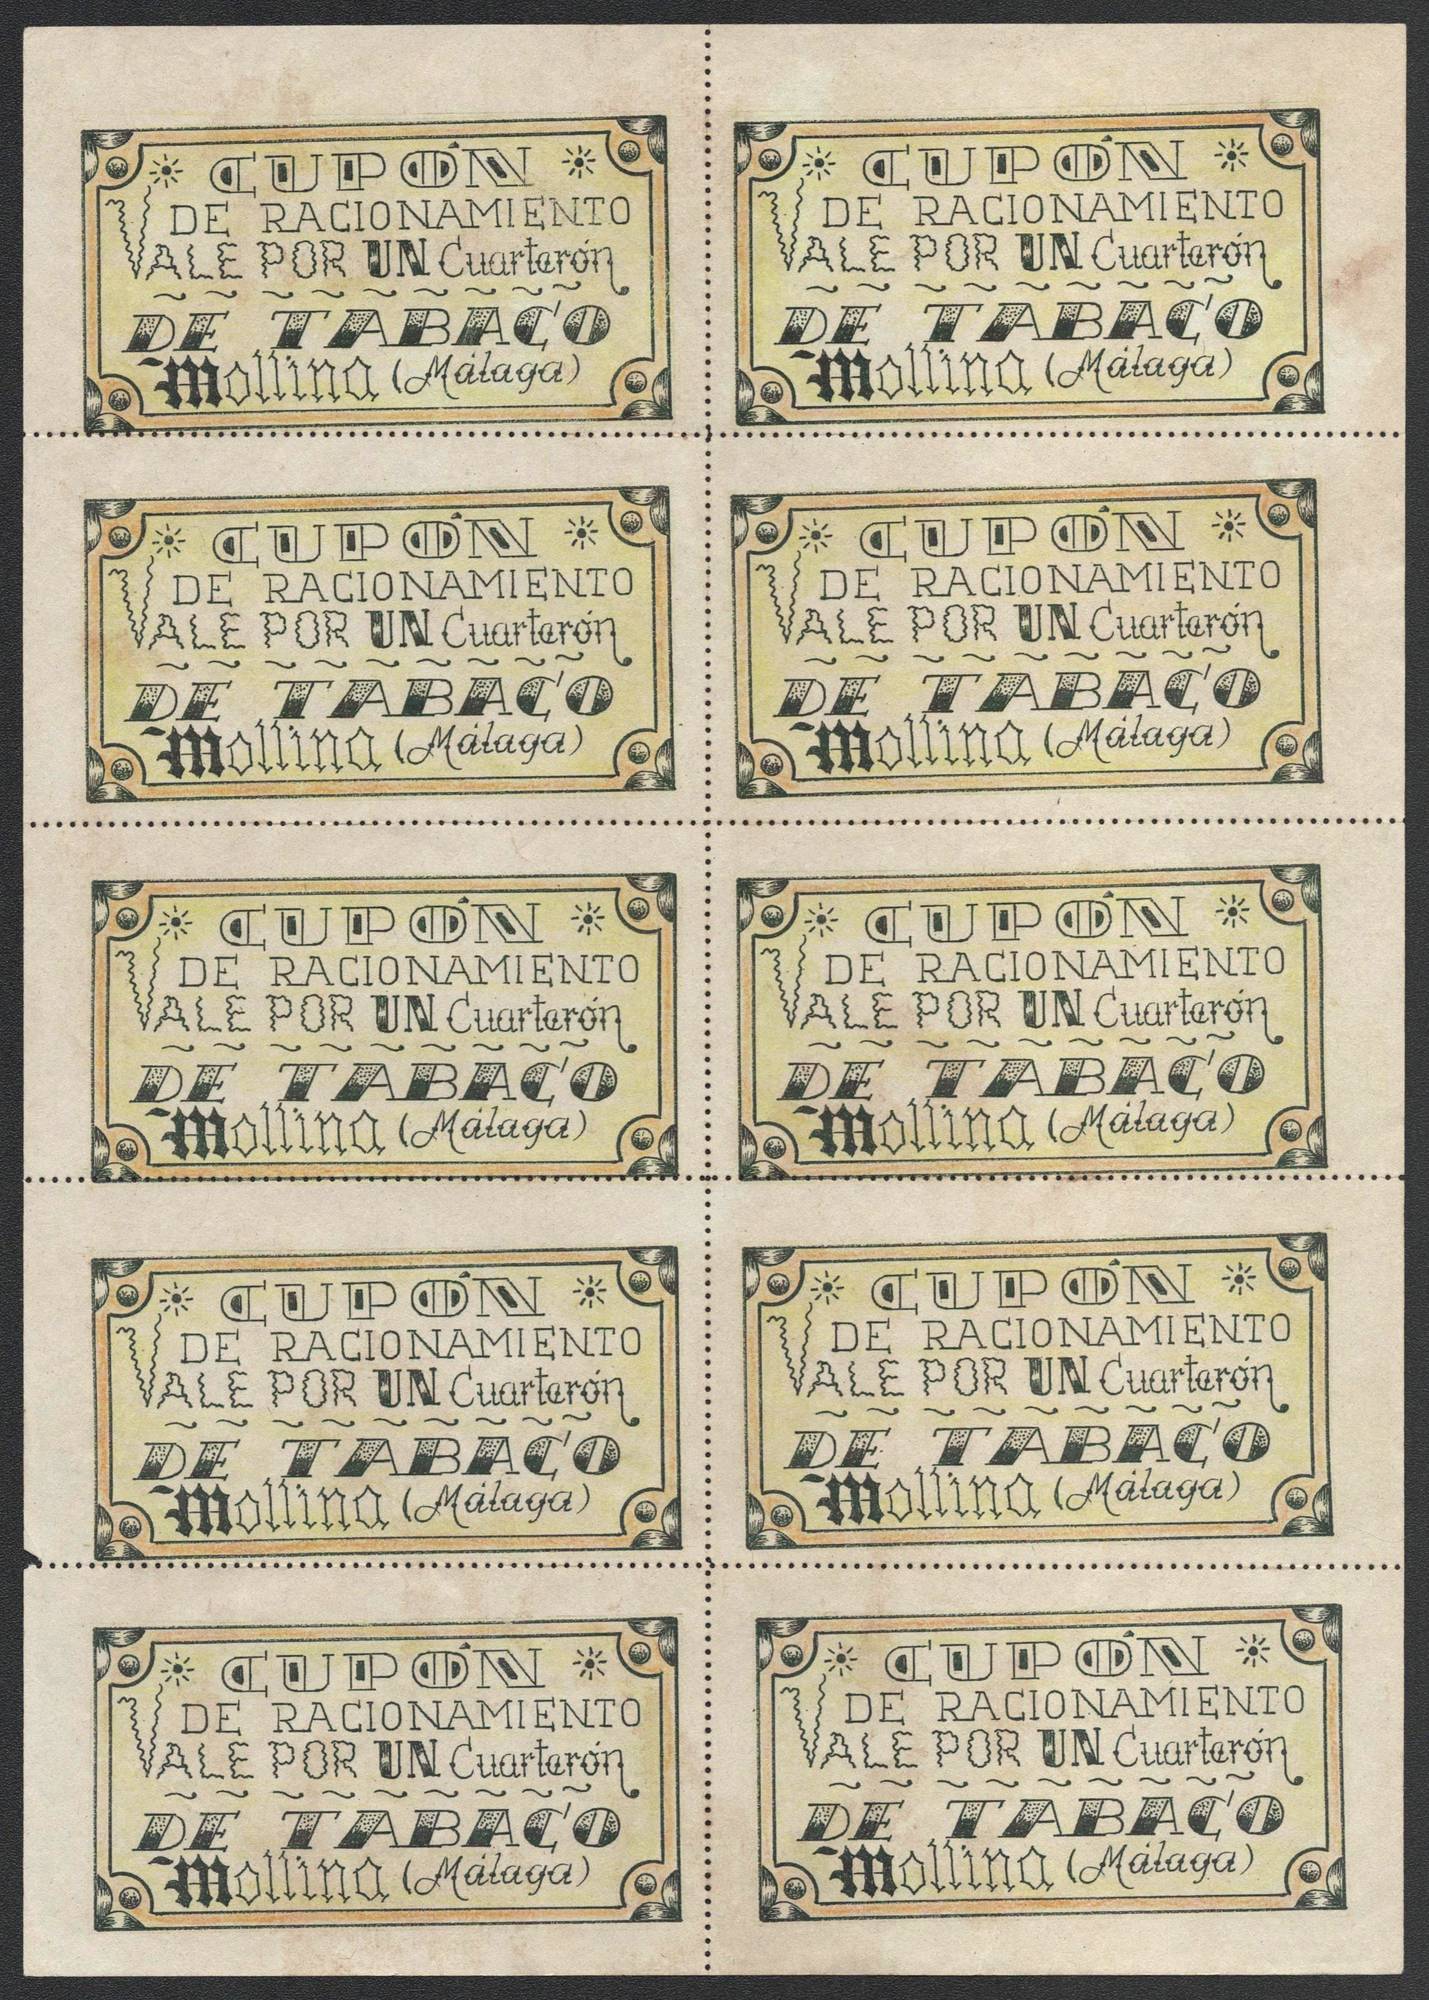 CUPÓN
DE RACIONAMIENTO
VALE POR UN Cuarterón
DE TABACO
Mollina (Málaga)
CUPÓN
DE RACIONAMIENTO
VALE POR UN Cuarterón
DE TABACO
Mollina (Málaga)
CUPÓN
DE RACIONAMIENTO
VALE POR UN Cuarterón
DE TABACO
Mollina (Málaga)
CUPÓN
DE RACIONAMIENTO
VALE POR UN Cuarterón
DE TABACO
Mollina (Málaga)
CUPÓN
DE RACIONAMIENTO
VALE POR UN Cuarterón
DE TABACO
Mollina (Málaga)
CUPÓN
DE RACIONAMIENTO
VALE POR UN Cuarterón
DE TABACO
Mollina (Málaga)
CUPÓN
DE RACIONAMIENTO
VALE POR UN Cuarterón
DE TABACO
Mollina (Málaga)
CUPÓN
DE RACIONAMIENTO
VALE POR UN Cuarterón
DE TABACO
Mollina (Málaga)
CUPÓN
DE RACIONAMIENTO
VALE POR UN Cuarterón
DE TABACO
Mollina (Málaga)
CUPÓN
DE RACIONAMIENTO
VALE POR UN Cuarterón
DE TABACO
Mollina (Málaga)